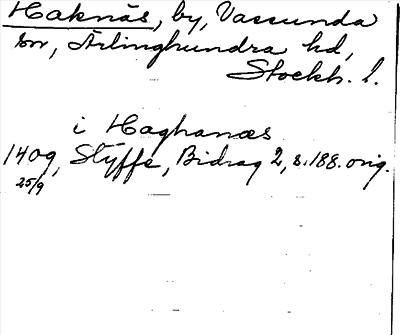 Haknäs, by, Vassunda
sn, Ärlinghundra hd,
Stockh. l.
i Haghanæs
1409, Styffe, Bidrag 2, s. 188. orig.
25/9